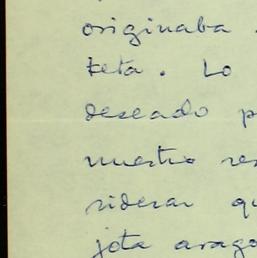 originaba
teta. Lo
deseado p
nuestro re
siderar qu
jota arago